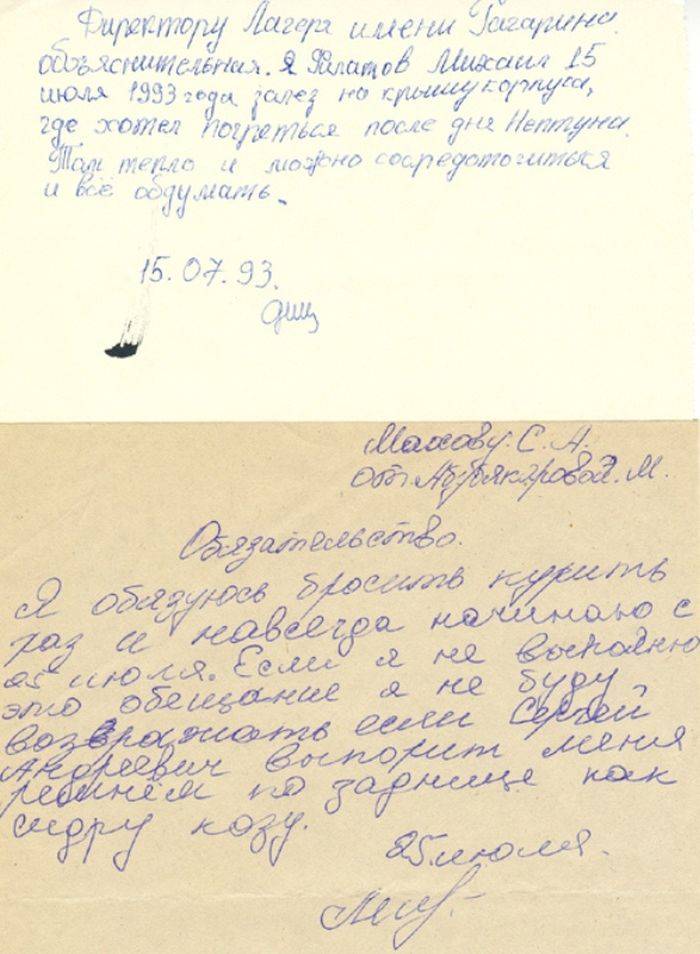 Директору Лагеря имени Гагарина
объяснительная. Я Филатов Михаил 15
июля 1993 года залез на крышу корпуса,
где хотел погреться после дня Нептуна.
Там тепло и можно сосредоточиться
и всё обдумать.
15.07.93.
Махову. С. А.
от М.
Обязательство.
Я обязуюсь бросить курить
раз и навсегда начинаю с
25 июля. Если я не выполню
это обещание я не буду
возвражать если Сергей
Андреевич выпорит меня
ремнём по заднице как
сидру козу.
25 июля.